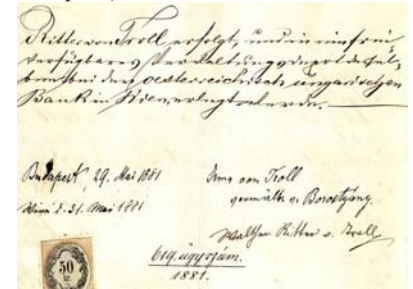 Ritter von Troll erfolgt, und in ein frei
verfügbares Verwaltungsdepot derselben
bei der oesterreichisch ungarischen
Bank in Wien erlegt werde.
Budapest, 29. Mai 1881
Wien d. 31. Mai 1881
Irma von Troll
vermählte v. Borostyány.
Walther Ritter v. Troll
619. ügyszám.
1881.
50
kr.